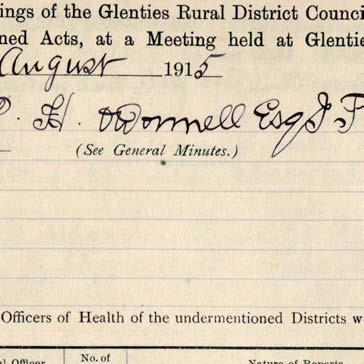 ings of the Glenties Rural District Counci
ned Acts, at a Meeting held at Glentie
August 1915
H. O'Donnell Esq J P
(See General Minutes.)
Officers of Health of the undermentioned Districts w
No. of
al Officer
Nature of Reports